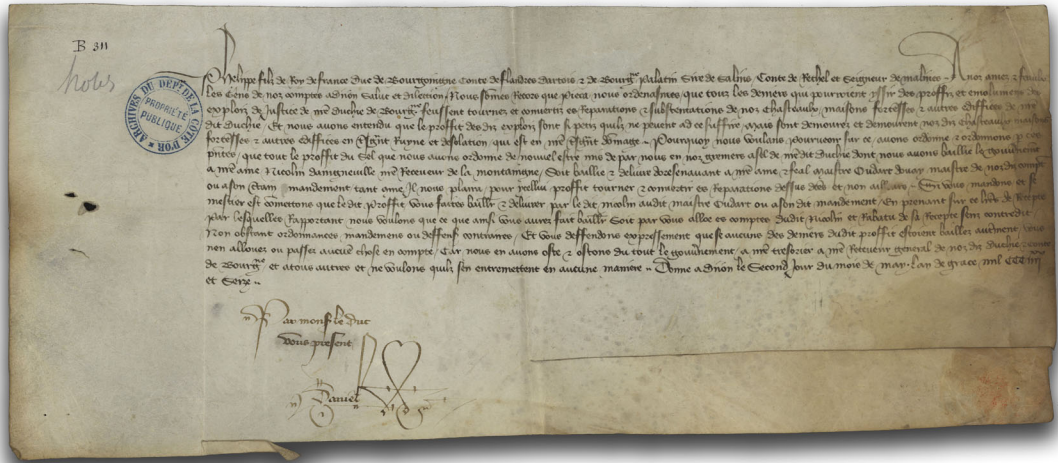 B 311
hobs
ARCHIVES DU DÉPT DE LA CÔTE D'OR
PROPRIÉTÉ PUBLIQUE
Phelippe filz de Roy de france Duc de Bourgoingne Conte de flandres dartois & de Bourgne Palatin Sire de Salins Conte de Rethel et Seigneur de malines A noz amez & feaulx
les Gens de noz comptes a Dijon Salut et dilection Nous sommes Recors que pieca nous ordenasmes que touz les deniers qui pourroient yssir des proffiz et emolumens des
exploiz de Justice de nre duchie de Bourgne feussent tournez et convertiz es Reparations & substentations de noz Chasteaulx maisons forteresses & autres Edifices de nre
dit Duchie Et nous avons entendu que le proffit des diz exploiz sont si petiz quilz ne peuent ad ce suffire Mais sont demourez et demourent noz diz Chasteaulx maisons
forteresses & autres ediffices en grant Ruyne et desolation qui est en nre grant domage Pourquoy nous voulans pourveoir sur ce avons ordonne & ordonnons p ces
pntes que tout le proffit du Sel que nous avons ordonne de nouvel estre mis de par nous en noz greniers a sel de nre dit Duchie dont nous avons baillie le gouvnement
a nre ame Nicolin Receveur de la montaigne Soit baillie & delivre doresenavant a nre ame & feal maistre Oudart douay maistre de noz diz comptes
ou a son mandement tant come Il nous plaira pour icellui proffit tourner & convertir es Reparations dessus dctes et non ailleurs Si vous mandons et se
mestier est cometons que le dit proffit vous faites baillr & delivrer par le dit Nicolin audit maistre Oudart ou a son dit mandement En prenant sur ce lres de Recepte
par lesquelles Rapportant nous voulons que ce que ainsi vous aurez fait baillr Soit par vous alloe es comptes dudit Nicolin et Rabatu de sa Recepte sens contredit
Non obstant ordonnances mandemens ou deffenses contraires Et vous deffendons expressement que se aucuns des deniers dudit proffit estoient baillez autrement vous
non allouez ou passez aucune chose en compte Car nous en avons oste & ostons du tout le gouvnement a nre tresorier a nre Receveur general de noz diz duchie & conte
de Bourgne et a touz autres et ne voulons quilz sen entremettent en aucune maniere Donne a Dijon le Second Jour du mois de may Lan de grace mil CCC iiijxx
et Seze
Par monss le duc
vous present
Daniel